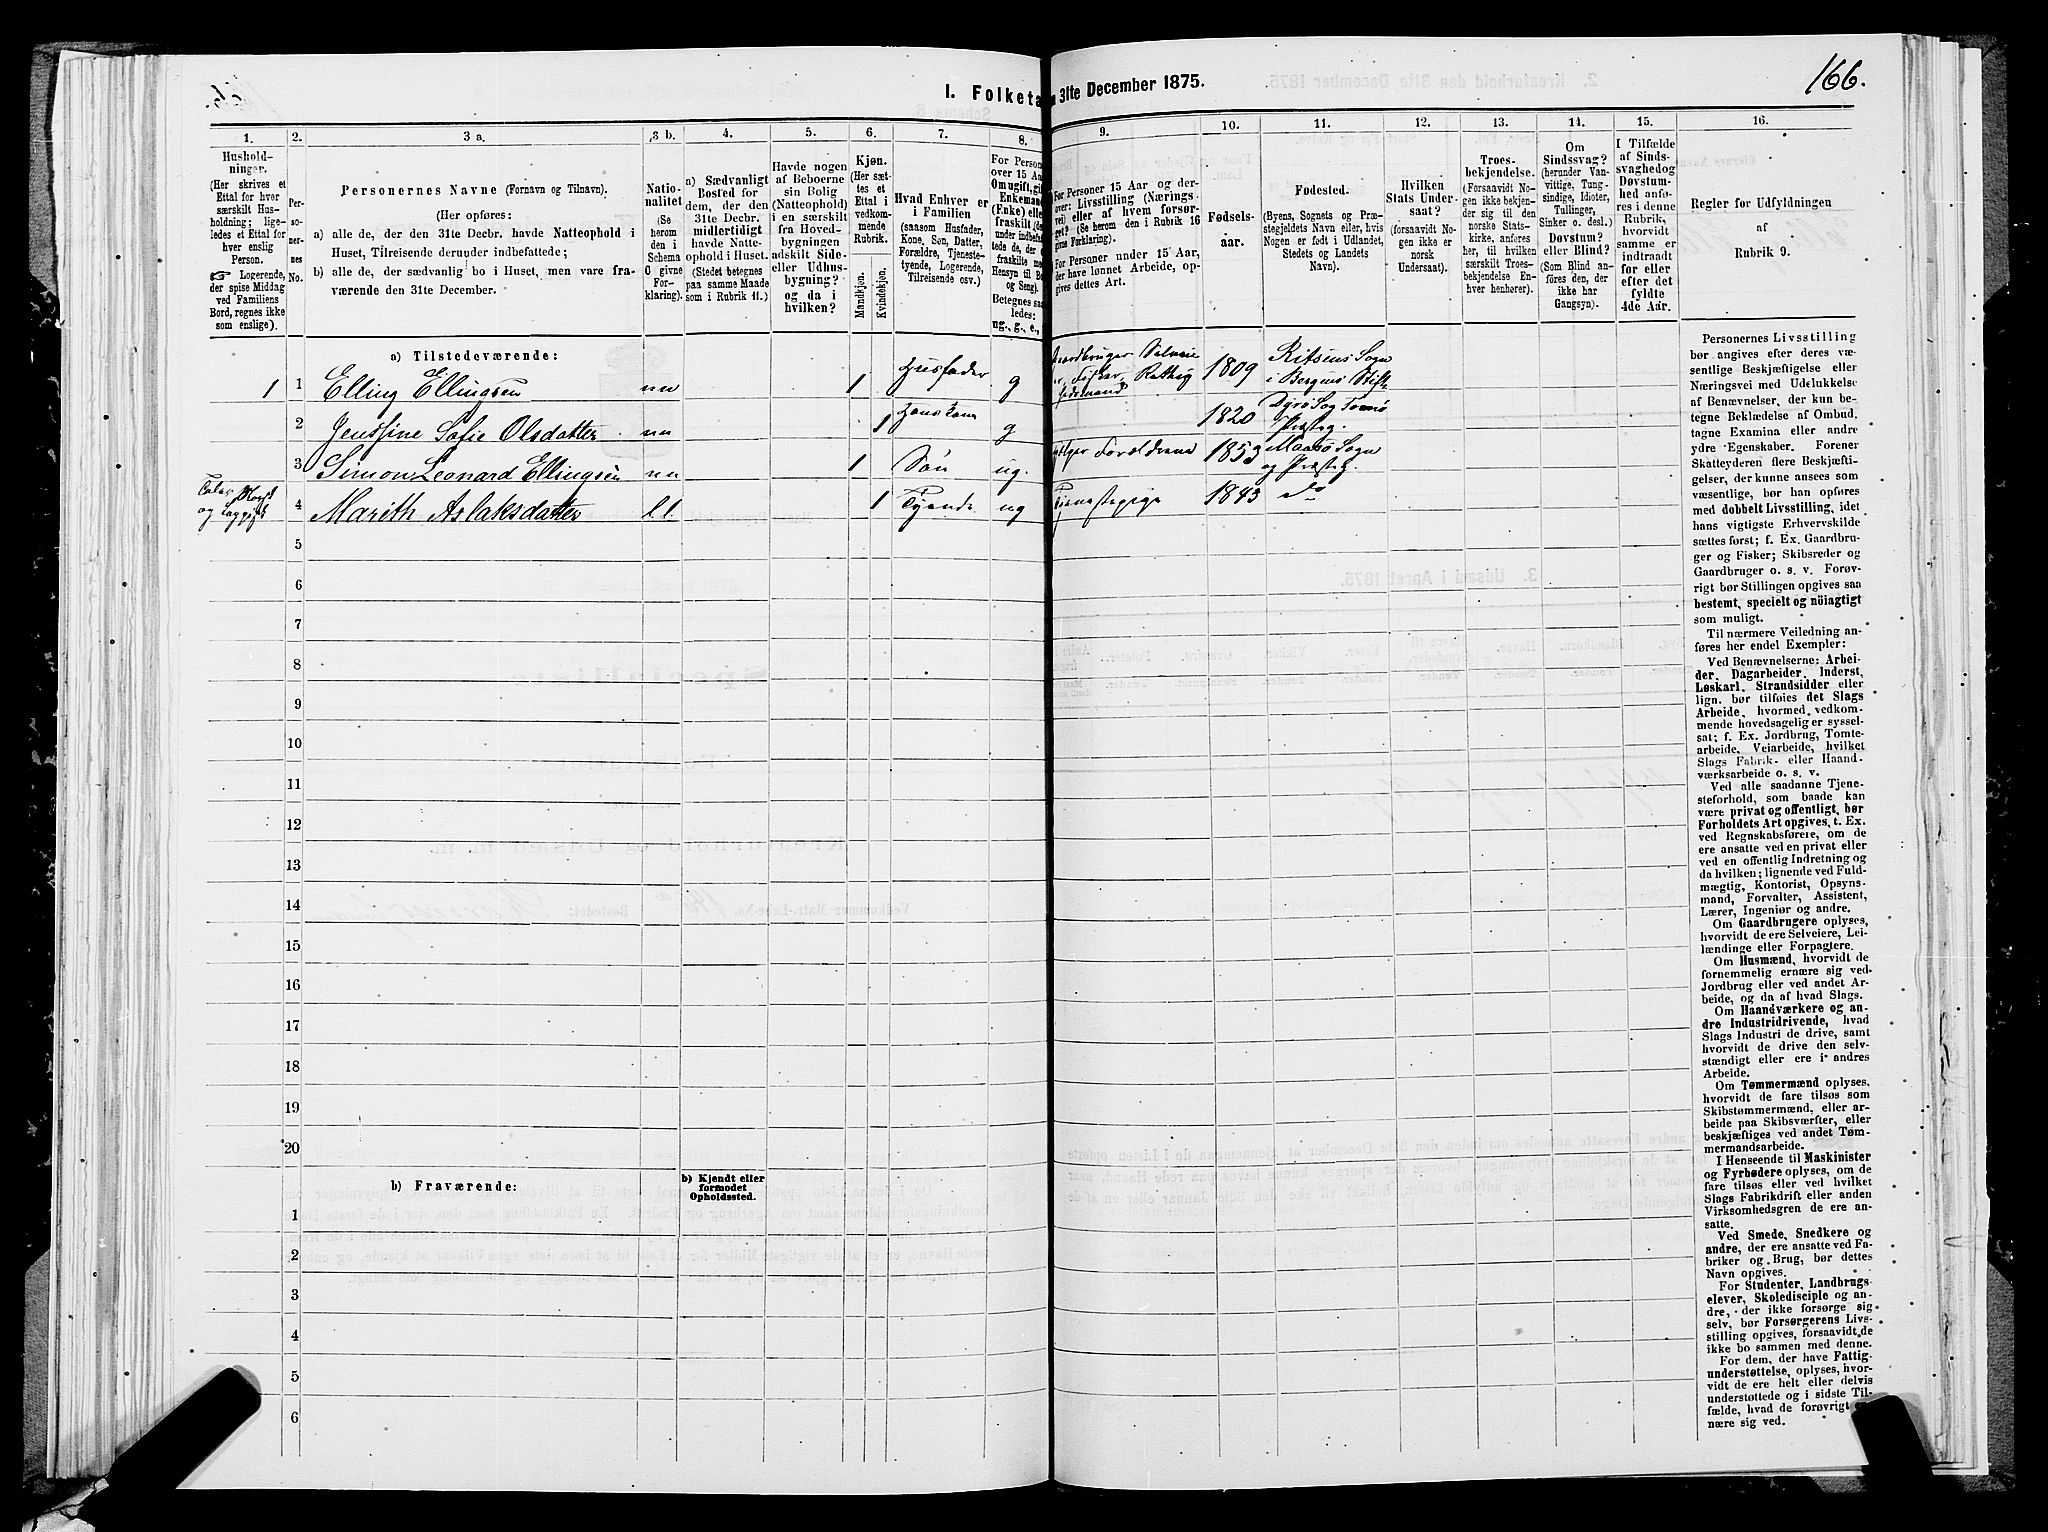 166.
I. Folketa
n 31te December 1875.
1.
2.
3 a.
3 b.
4.
5.
6.
7.
8.
9.
10.
11.
12.
13.
14.
15.
16.
Hushold-
ninger.
(Her skrives et
Ettal for hver
særskilt Hus-
holdning; lige-
ledes et Ettal for
hver enslig
Person.
☞ Logerende,
der spise Middag
ved Familiens
Bord, regnes ikke
som enslige).
Per-
so-
ner-
nes
No.
Personernes Navne (Fornavn og Tilnavn).
(Her opføres:
a) alle de, der den 31te Decbr. havde Natteophold i
Huset, Tilreisende derunder indbefattede;
b) alle de, der sædvanlig bo i Huset, men vare fra-
værende den 31te December.
Natio-
nalitet
(Se
herom
den i
Schema
O givne
For-
klaring).
a) Sædvanligt
Bosted for
dem, der den
31te Decbr.
midlertidigt
havde Natte-
ophold i Huset.
(Stedet betegnes
paa samme Maade
som i Rubrik 11.)
Havde nogen
af Beboerne
sin Bolig
(Natteophold)
i en særskilt
fra Hoved-
bygningen
adskilt Side-
eller Udhus-
bygning?
og da i
hvilken?
Kjøn.
(Her sæt-
tes et
Ettal i
vedkom-
mende
Rubrik.
Mandkjøn.
Kvindekjøn.
Hvad Enhver er
i Familien
(saasom Husfader,
Kone, Søn, Datter,
Forældre, Tjeneste-
tyende, Logerende,
Tilreisende osv.)
For Persone
over 15 Aa
Omugift, gi
Enkemand
(Enke) elle
fraskilt (de
under indbefat
tede de, der
fraskilte me
Hensyn til Bo
og Seng).
Betegnes saa
ledes:
ug., g., e.,
For Personer 15 Aar og der-
over: Livsstilling (Nærings-
vei) eller af hvem forsør-
get? (Se herom den i Rubrik 16
givne Forklaring).
For Personer under 15 Aar,
der have lønnet Arbeide, op-
gives dettes Art.
Fødsels-
aar.
Fødested.
(Byens, Sognets og Præ-
stegjeldets Navn eller, hvis
Nogen er født i Udlandet,
Stedets og Landets
Navn).
Hvilken
Stats Under-
saat?
(Forsaavidt No-
gen ikke er
norsk
Undersaat).
Troes-
bekjendelse.
(Forsaavidt No-
gen ikke bekjen-
der sig til den
norske Stats-
kirke, anføres
her, til hvilken
særskilt Troes-
bekjendelse En-
hver henhører).
Om
Sindssvag?
(herunder Van-
vittige, Tung-
sindige, Idioter,
Tullinger,
Sinker o. desl.)
Døvstum?
eller Blind?
(Som Blind an-
føres den, der
ikke har
Gangsyn).
I Tilfælde
af Sinds-
svaghedog
Døvstum-
hed anfø-
res i denne
Rubrik,
hvorvidt
samme er
indtraadt
før eller
efter det
fyldte
4de Aar.
Regler for Udfyldningen
af
Rubrik 9.
a) Tilstedeværende:
1 1 Elling Ellingsen nn 1 Husfader g Gaardbruger Selveie
Fisker 1809 Ritsens Sogn
i Bergens Stift
2 Jenssine Sofie Olsdatter nn 1 Hans Kone g 1820 Dyrø Sog Tranø
Præsteg.
3 Simon Leonard Ellingsen nn 1 Søn ug. Forældrene 1853 Maasø Sogn
og Præsteg.
Taler Norsk
og Lappisk
4 Marith Aslaksdatter l.l. 1 Tyende ug Tjenestepige 1843 do
5
6
7
8
9
10
11
12
13
14
15
16
17
18
19
20
b) Fraværende:
b) Kjendt eller
formodet
Opholdssted.
1
2
3
4
5
6
Personernes Livsstilling
bør angives efter deres væ-
sentlige Beskjæftigelse eller
Næringsvei med Udelukkelse
af Benævnelser, der kun be-
tegne Beklædelse af Ombud,
tagne Examina eller andre
ydre Egenskaber. Forener
Skatteyderen flere Beskjæfti-
gelser, der kunne ansees som
væsentlige, bør han opføres
med dobbelt Livsstilling, idet
hans vigtigste Erhvervskilde
sættes først; f. Ex. Gaardbru-
ger og Fisker; Skibsreder og
Gaardbruger o. s. v. Forøv-
rigt bør Stillingen opgives saa
bestemt, specielt og nöiagtigt
som muligt.
Til nærmere Veiledning an-
føres her endel Exempler:
Ved Benævnelserne: Arbei-
der, Dagarbeider, Inderst,
Løskarl, Strandsidder eller
lign. bør tilføies det Slags
Arbeide, hvormed vedkom-
mende hovedsagelig er syssel-
sat; f. Ex. Jordbrug, Tomte-
arbeide, Veiarbeide, hvilket
Slags Fabrik- eller Haand-
værksarbeide o. s. v.
Ved alle saadanne Tjene-
steforhold, som baade kan
være privat og offentligt, bør
Forholdets Art opgives, t. Ex.
ved Regnskabsførere, om de
ere ansatte ved en privat eller
ved en offentlig Indretning og
da hvilken; lignende ved Fuld-
mægtig, Kontorist, Opsyns-
mand, Forvalter, Assistent,
Lærer, Ingeniør og andre.
Om Gaardbrugere oplyses,
hvorvidt de ere Selveiere, Lei-
lændinge eller Forpagtere.
Om Husmænd, hvorvidt de
fornemmelig ernære sig ved
Jordbrug eller ved andet Ar-
beide, og da af hvad Slags.
Om Haandværkere og an-
dre Industridrivende, hvad
Slags Industri de drive, samt
hvorvidt de drive den selv-
stændigt eller ere i andres
Arbeide.
Om Tømmermænd oplyses,
hvorvidt de fare tilsøs som
Skibstømmermænd, eller ar-
beide paa Skibsværfter, eller
beskjæftiges ved andet Tøm-
mermandsarbeide.
I Henseende til Maskinister
og Fyrbødere oplyses, om de
fare tilsøs eller ved hvilket
Slags Fabrikdrift eller anden
Virksomhedsgren de ere an-
satte.
Ved Smede, Snedkere og
andre, der ere ansatte ved Fa-
briker og Brug, bør dettes
Navn opgives.
For Studenter, Landbrugs-
elever, Skoledisciple og an-
dre, der ikke forsørge sig
selv, bør Forsørgerens Livs-
stilling opgives, forsaavidt de
ikke bo sammen med denne.
For dem, der have Fattig-
understøttelse, oplyses, hvor-
vidt de ere helt eller delvis
understøttede og i sidste Til-
fælde, hvad de forøvrigt er-
nære sig ved.